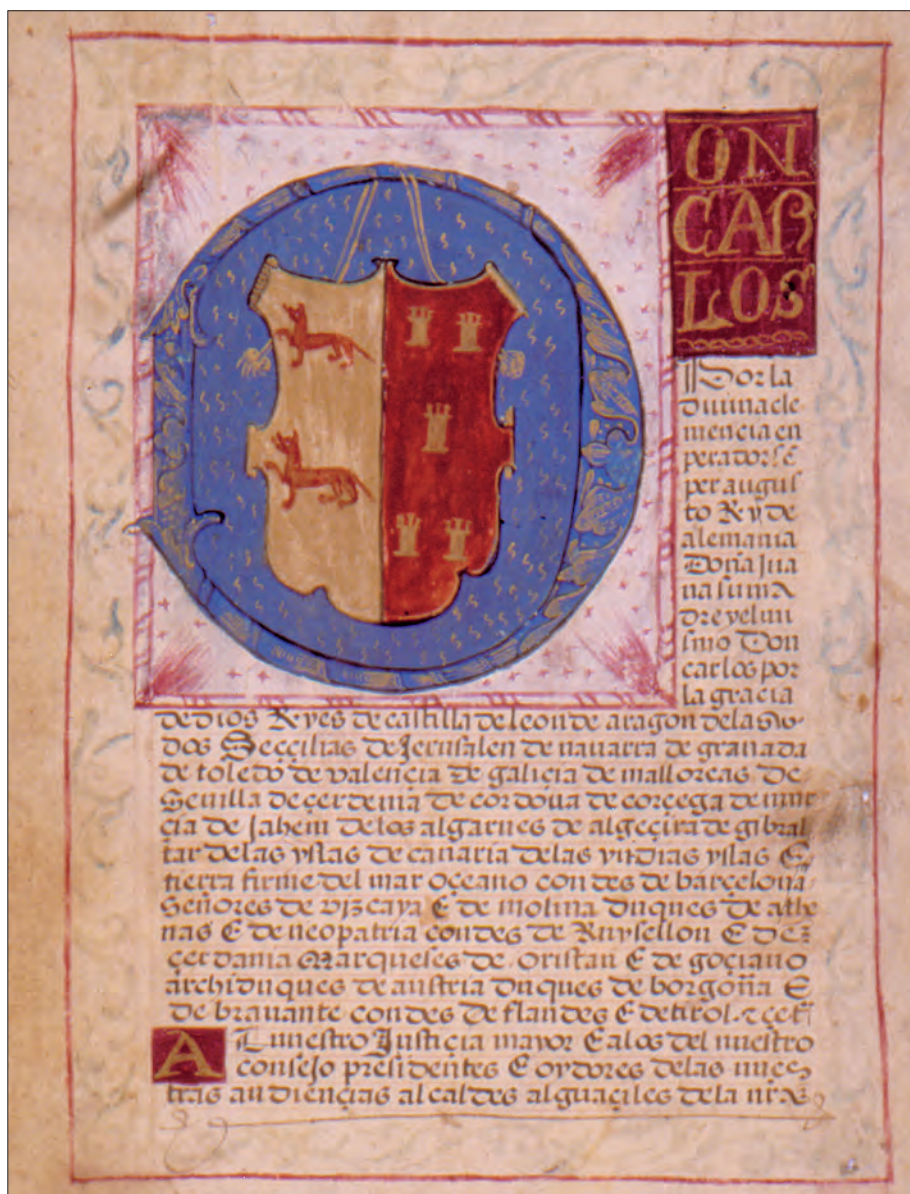 ON
CAR
LOS
Por la
diuina cle
mencia en
perador sē
per augus
to Rey de
alemania
Doña Jua
na su ma
dre y el mis
smo Don
carlos por
la gracia
de dios Reyes de castilla de leon de aragon de las
dos Seçilias de Jerusalen de nauarra de granada
de toledo de valençia de galiçia de mallorcas de
Seuilla de çerdenia de cordoua de corçega de mur
çia de Jahem de los algarues de algeçira de gibral
tar de las yslas de canaria de las yndias yslas E
tierra firme del mar oçeano condes de barçelona
Señores de vizcaya E de molina duques de athe
nas E de neopatria condes de Ruysellon E de
çerdania Marqueses de oristan E de goçiano
archiduques de austria duques de borgoña E
de brauante condes de flandes E de tirol
A L nuestro Justiçia mayor E a los del nuestro
consejo presidentes E oydores de las nues
tras audiençias alcaldes alguaçiles de la nrā